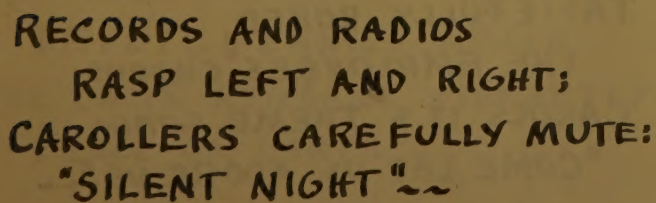 RECORDS AND RADIOS
RASP LEFT AND RIGHT;
CAROLLERS CAREFULLY MUTE:
"SILENT NIGHT"~~